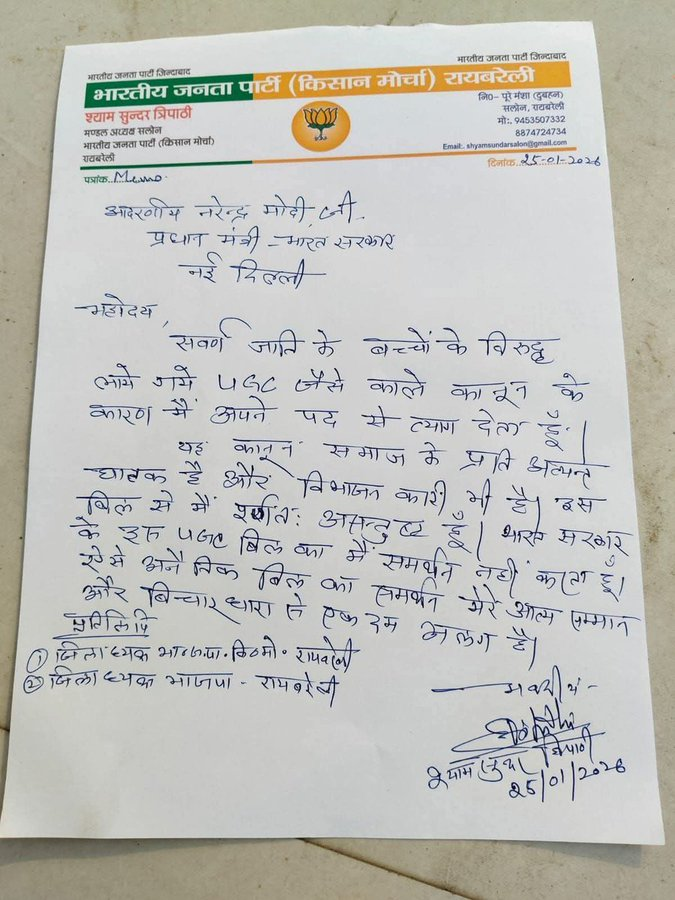 भारतीय जनता पार्टी जिन्दाबाद
भारतीय जनता पार्टी जिन्दाबाद
भारतीय जनता पार्टी (किसान मोर्चा) रायबरेली
श्याम सुन्दर त्रिपाठी
मण्डल अध्यक्ष सलोन
भारतीय जनता पार्टी (किसान मोर्चा)
रायबरेली
नि०- पूरे मंशा (दुबहन)
सलोन, रायबरेली
मो:. 9453507332
8874724734
Email:. shyamsundarsalon@gmail.com
पत्रांक. Memo.
दिनांक. 25-01-2026
आदरणीय नरेन्द्र मोदी जी.
प्रधान मंत्री - भारत सरकार
नई दिल्ली
महोदय,
सवर्ण जाति के बच्चों के विरुद्ध
लाये गये UGC जैसे काले कानून के
कारण मैं अपने पद से त्याग देता हूँ।
यह कानून समाज के प्रति अत्यन्त
घातक है और विभाजन कारी भी है। इस
बिल से मैं पूर्णत: असन्तुष्ट हूँ। भारत सरकार
के इस UGC बिल का मैं समर्थन नहीं करता हूँ।
ऐसे अनैतिक बिल का समर्थन मेरे आत्म सम्मान
और विचारधारा से एकदम अलग है।
प्रतिलिपि
① जिलाध्यक्ष भाजपा. कि०मो० रायबरेली
② जिलाध्यक्ष भाजपा - रायबरेली
भवदीय -
श्याम सुन्दर त्रिपाठी
25/01/2026